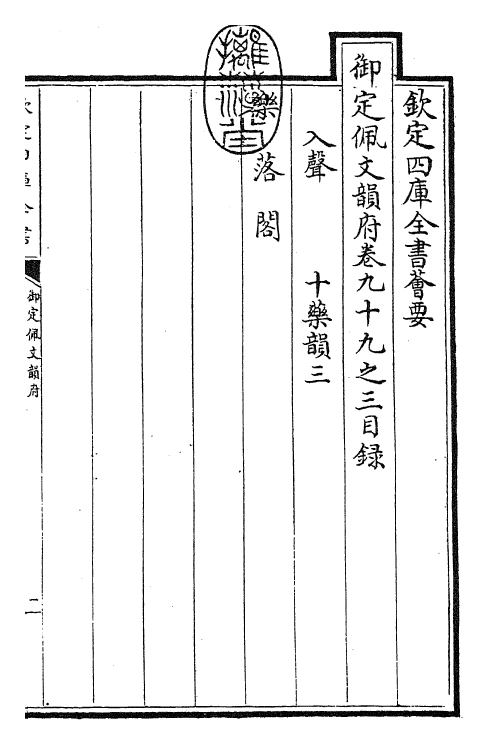 欽定四庫全書薈要
御定佩文韻府卷九十九之三目録
入聲　十藥韻三
落　閣
御定佩文韻府
二